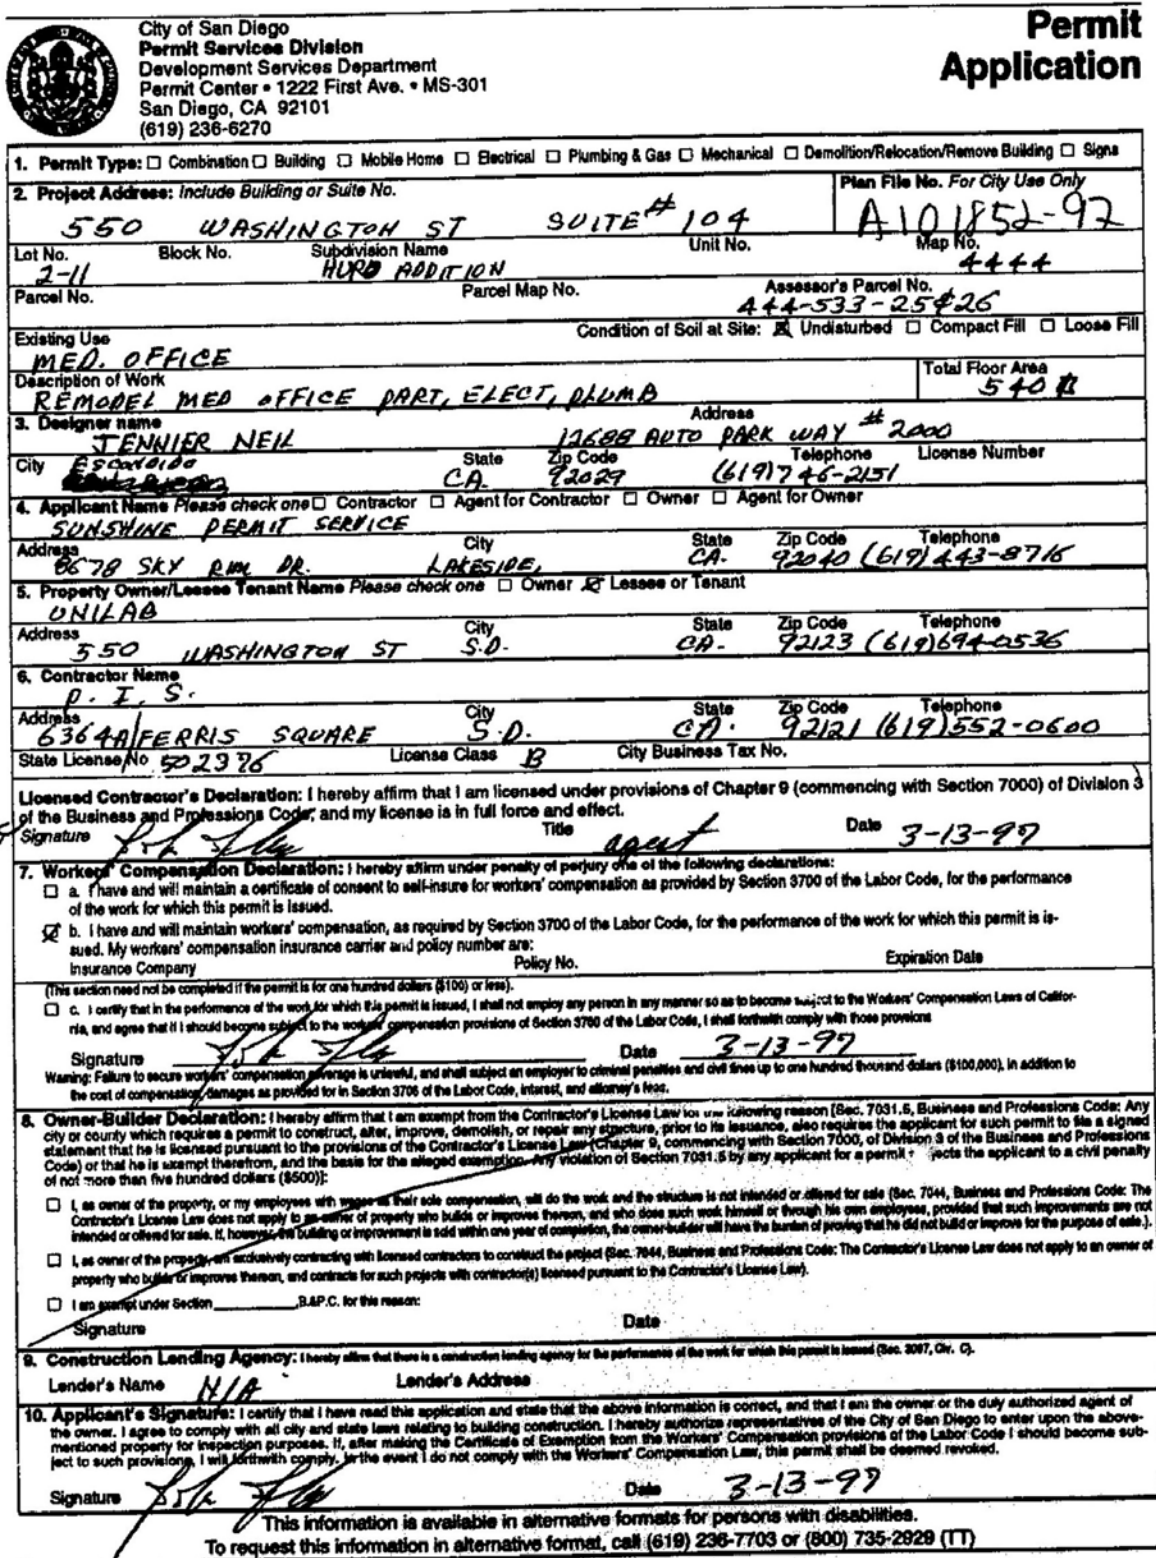 City of San Diego
Permit Services Division
Development Services Department
Permit Center • 1222 First Ave. • MS-301
San Diego, CA 92101
(619) 236-6270
Permit
Application
1. Permit Type: ☐ Combination ☐ Building ☐ Mobile Home ☐ Electrical ☐ Plumbing & Gas ☐ Mechanical ☐ Demolition/Relocation/Remove Building ☐ Signs
2. Project Address: Include Building or Suite No.
Plan File No. For City Use Only
550 WASHINGTON ST SUITE # 104
A101852-97
Lot No. Block No. Subdivision Name Unit No. Map No.
2-11 HURD ADDITION 4444
Parcel No. Parcel Map No. Assessor's Parcel No.
444-533-25 & 26
Existing Use Condition of Soil at Site: ☒ Undisturbed ☐ Compact Fill ☐ Loose Fill
MED. OFFICE
Description of Work Total Floor Area
REMODEL MED OFFICE PART, ELECT, PLUMB 540
3. Designer name Address
JENNIER NEIL 12688 AUTO PARK WAY # 2000
City State Zip Code Telephone License Number
Escondido CA. 92029 (619) 746-2151
4. Applicant Name Please check one ☐ Contractor ☐ Agent for Contractor ☐ Owner ☐ Agent for Owner
SUNSHINE PERMIT SERVICE
Address City State Zip Code Telephone
8678 SKY RIM DR. LAKESIDE, CA. 92040 (619) 443-8716
5. Property Owner/Lessee Tenant Name Please check one ☐ Owner ☒ Lessee or Tenant
UNILAB
Address City State Zip Code Telephone
550 WASHINGTON ST S.D. CA. 92123 (619) 694-0536
6. Contractor Name
P. I. S.
Address City State Zip Code Telephone
6364A FERRIS SQUARE S.D. CA. 92121 (619) 552-0600
State License No 502376 License Class B City Business Tax No.
Licensed Contractor's Declaration: I hereby affirm that I am licensed under provisions of Chapter 9 (commencing with Section 7000) of Division 3
of the Business and Professions Code, and my license is in full force and effect.
Signature Title agent Date 3-13-97
7. Workers' Compensation Declaration: I hereby affirm under penalty of perjury one of the following declarations:
☐ a. I have and will maintain a certificate of consent to self-insure for workers' compensation as provided by Section 3700 of the Labor Code, for the performance
of the work for which this permit is issued.
☒ b. I have and will maintain workers' compensation, as required by Section 3700 of the Labor Code, for the performance of the work for which this permit is is-
sued. My workers' compensation insurance carrier and policy number are:
Insurance Company Policy No. Expiration Date
(This section need not be completed if the permit is for one hundred dollars ($100) or less).
☐ c. I certify that in the performance of the work for which this permit is issued, I shall not employ any person in any manner so as to become subject to the Workers' Compensation Laws of Califor-
nia, and agree that if I should become subject to the workers' compensation provisions of Section 3700 of the Labor Code, I shall forthwith comply with those provisions
Signature Date 3-13-97
Warning: Failure to secure workers' compensation coverage is unlawful, and shall subject an employer to criminal penalties and civil fines up to one hundred thousand dollars ($100,000), in addition to
the cost of compensation, damages as provided for in Section 3706 of the Labor Code, interest, and attorney's fees.
8. Owner-Builder Declaration: I hereby affirm that I am exempt from the Contractor's License Law for the following reason [Sec. 7031.5, Business and Professions Code: Any
city or county which requires a permit to construct, alter, improve, demolish, or repair any structure, prior to its issuance, also requires the applicant for such permit to file a signed
statement that he is licensed pursuant to the provisions of the Contractor's License Law (Chapter 9, commencing with Section 7000, of Division 3 of the Business and Professions
Code) or that he is exempt therefrom, and the basis for the alleged exemption. Any violation of Section 7031.5 by any applicant for a permit jects the applicant to a civil penalty
of not more than five hundred dollars ($500)]:
☐ I, as owner of the property, or my employees with wages as their sole compensation, will do the work and the structure is not intended or offered for sale (Sec. 7044, Business and Professions Code: The
Contractor's License Law does not apply to an owner of property who builds or improves thereon, and who does such work himself or through his own employees, provided that such improvements are not
intended or offered for sale. If, however, the building or improvement is sold within one year of completion, the owner-builder will have the burden of proving that he did not build or improve for the purpose of sale.).
☐ I, as owner of the property, am exclusively contracting with licensed contractors to construct the project (Sec. 7044, Business and Professions Code: The Contractor's License Law does not apply to an owner of
property who builds or improves thereon, and contracts for such projects with contractor(s) licensed pursuant to the Contractor's License Law).
☐ I am exempt under Section ______, B.&P.C. for this reason:
Signature Date
9. Construction Lending Agency: I hereby affirm that there is a construction lending agency for the performance of the work for which this permit is issued (Sec. 3097, Civ. C).
Lender's Name N/A Lender's Address
10. Applicant's Signature: I certify that I have read this application and state that the above information is correct, and that I am the owner or the duly authorized agent of
the owner. I agree to comply with all city and state laws relating to building construction. I hereby authorize representatives of the City of San Diego to enter upon the above-
mentioned property for inspection purposes. If, after making the Certificate of Exemption from the Workers' Compensation provisions of the Labor Code I should become sub-
ject to such provisions, I will forthwith comply. In the event I do not comply with the Workers' Compensation Law, this permit shall be deemed revoked.
Signature Date 3-13-97
This information is available in alternative formats for persons with disabilities.
To request this information in alternative format, call (619) 236-7703 or (800) 735-2929 (TT)